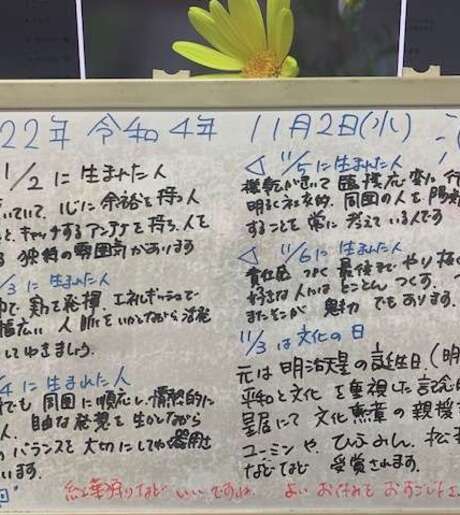 22年 令和4年 11月2日(水)
11/2 に生まれた人
いていて、心に余裕を持つ人
と、キャッチするアンテナを持ち、人を
る 独特の雰囲気があります
/3 に 生まれた人
中で、実力を発揮、エネルギッシュで
幅広い 人脈をいかしながら活発
してゆきましょう。
4 に 生まれた人
でも 周囲に順応し、情熱的に
人、自由な発想を生かしながら
のバランスを大切にして
います。
◁ 11/5 に生まれた人
機転がきいて 臨機応変に行
明るく社交的、周囲の人を
することを 常に 考えている人です
◁ 11/6 に生まれた人
責任感 つよく 最後まで やり
好きな人には とことん つくす、
またそこが 魅力 でもあります。
11/3 は 文化の日
元は 明治天皇の誕生日 (明
平和と文化 を重視した記念
皇居にて 文化勲章の 親授
ユーミンや、ひふみん、松
などなど 受賞されます。
紅葉狩りなど いいですね。 よい お休みを おすごし下さ